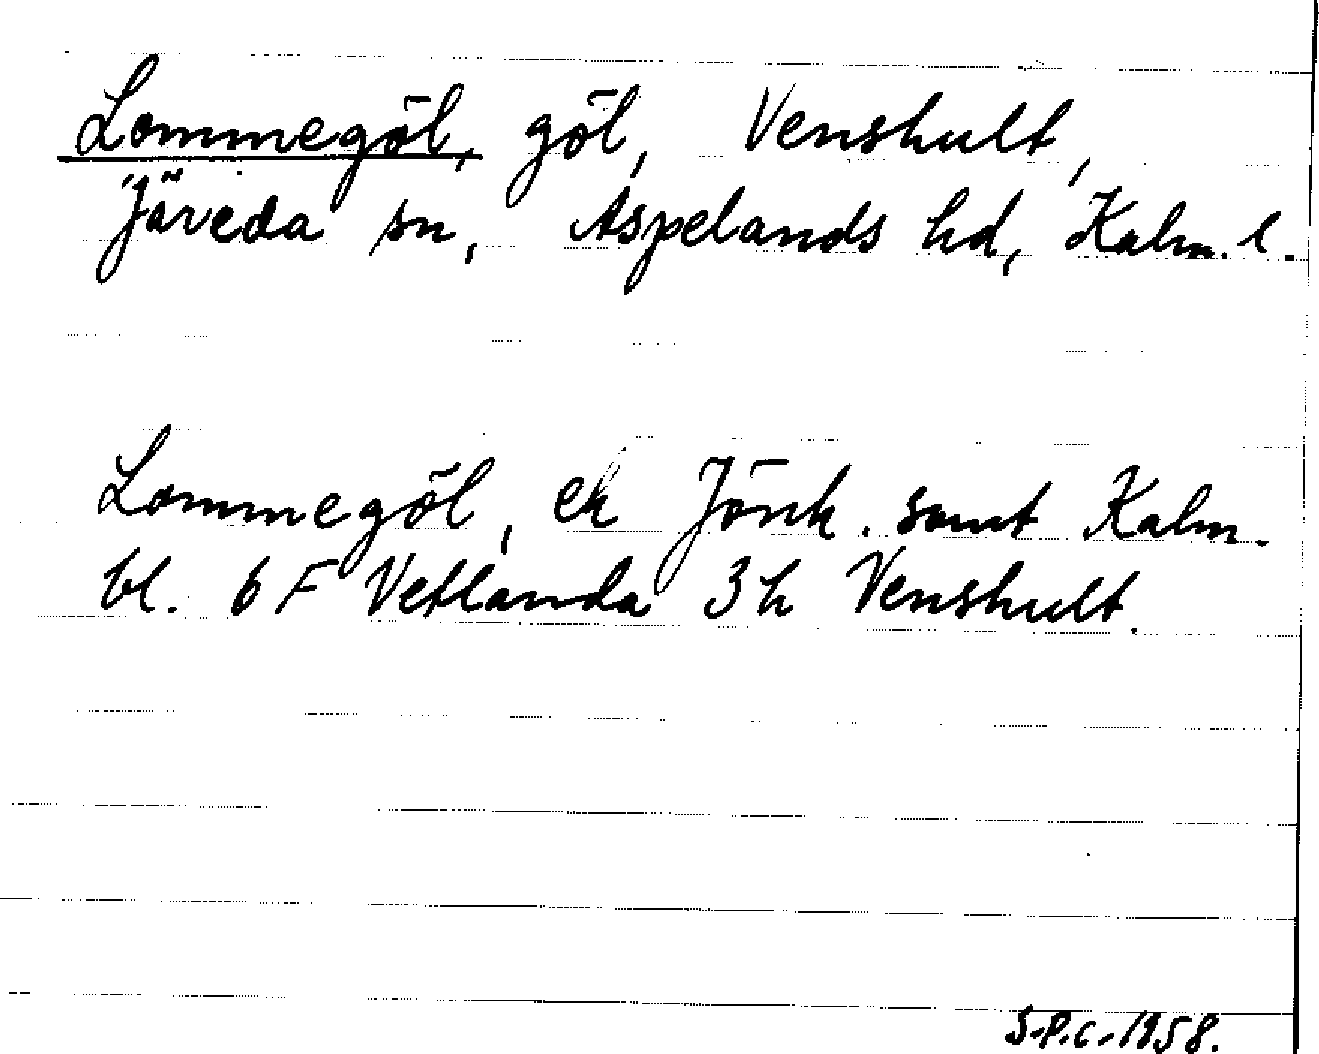 Lommegöl, göl, Venshult,
Järeda sn, Aspelands hd, Kalm. l.
Lommegöl, ek Jönk. samt Kalm.
bl. 6 F Vetlanda 3h Venshult.
S.P.C.-1958.